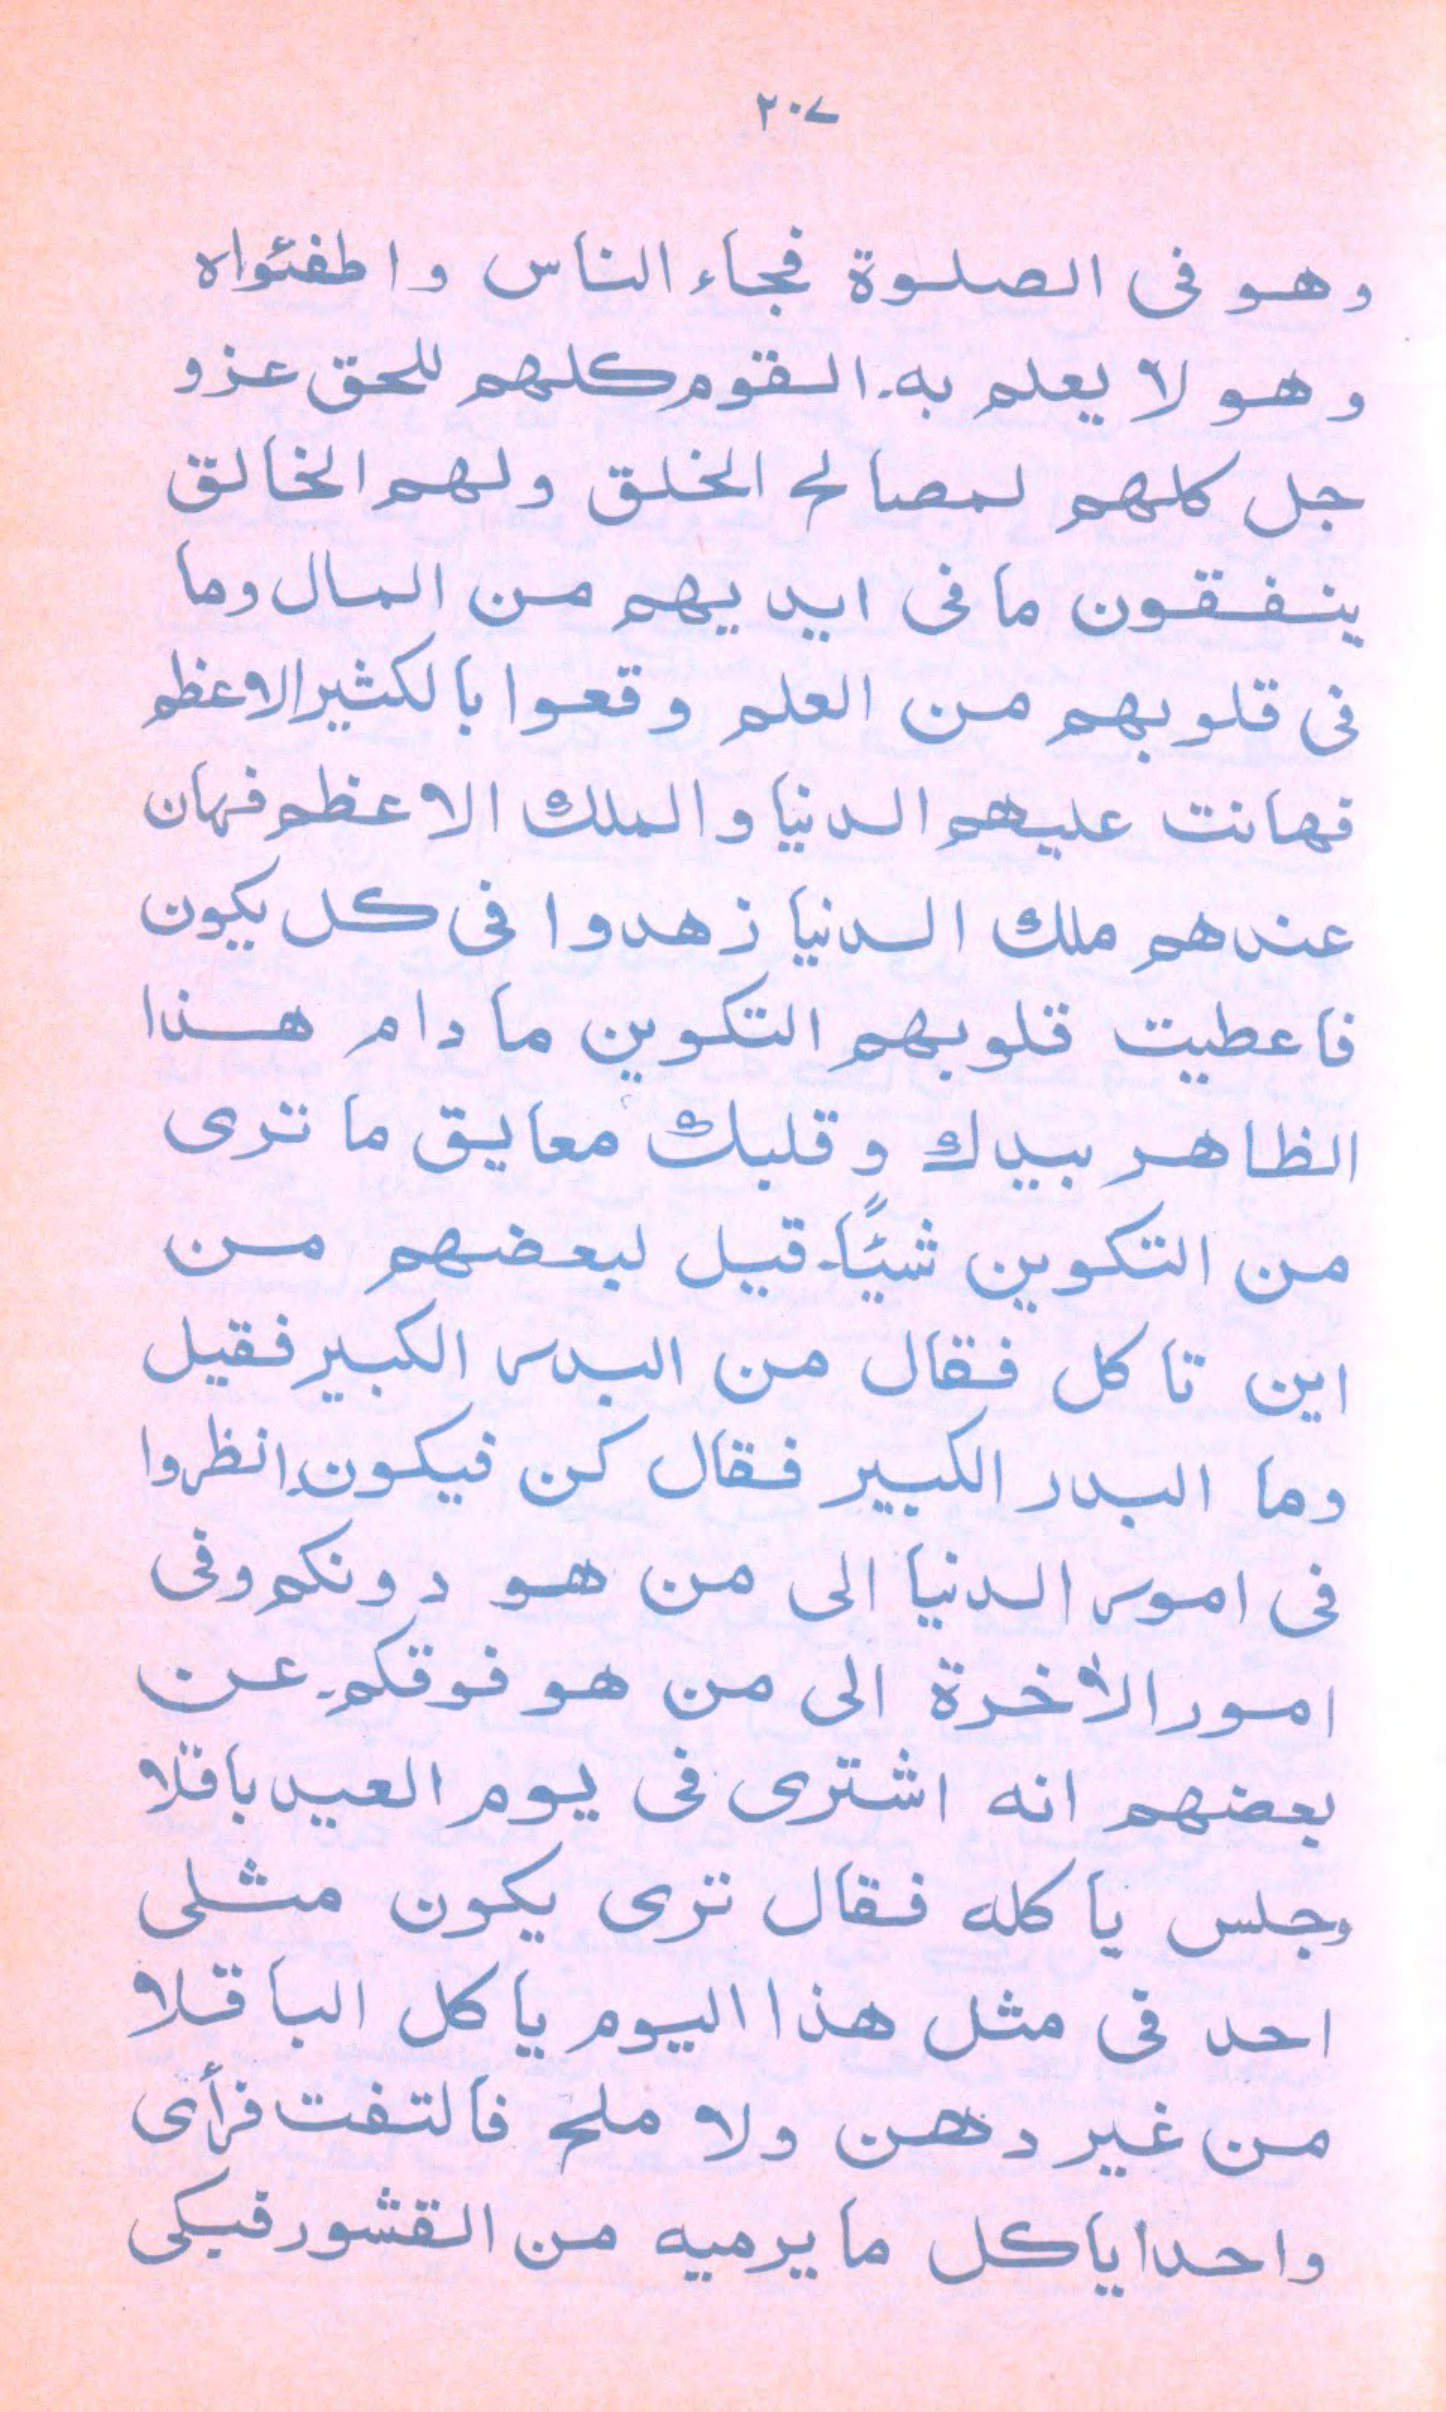 ٢٠٧
وهو فى الصلوة فجاء الناس واطفئواه
وهو لا يعلم به۔ القوم كلهم للحق عزو
جل كلهم لمصالح الخلق ولهم الخالق
ينفقون ما فى ايديهم من المال وما
فى قلوبهم من العلم وقعوا بالكثير الاعظم
فهانت عليهم الدنيا والملك الاعظم فهان
عندهم ملك الدنيا زهدوا فى كل يكون
فاعطيت قلوبهم التكوين ما دام هذا
الظاهر بيدك وقلبك معايق ما ترى
من التكوين شيئًا۔ قيل لبعضهم من
اين تاكل فقال من البدر الكبير فقيل
وما البدر الكبير فقال كن فيكون۔ انظروا
فى امور الدنيا الى من هو دونكم وفى
امور الأخرة الى من هو فوقكم۔ عن
بعضهم انه اشترى فى يوم العيد باقلا
وجلس ياكله فقال ترى يكون مثلى
احد فى مثل هذا اليوم ياكل الباقلا
من غير دهن ولا ملح فالتفت فرأى
واحدا ياكل ما يرميه من القشور فبكى